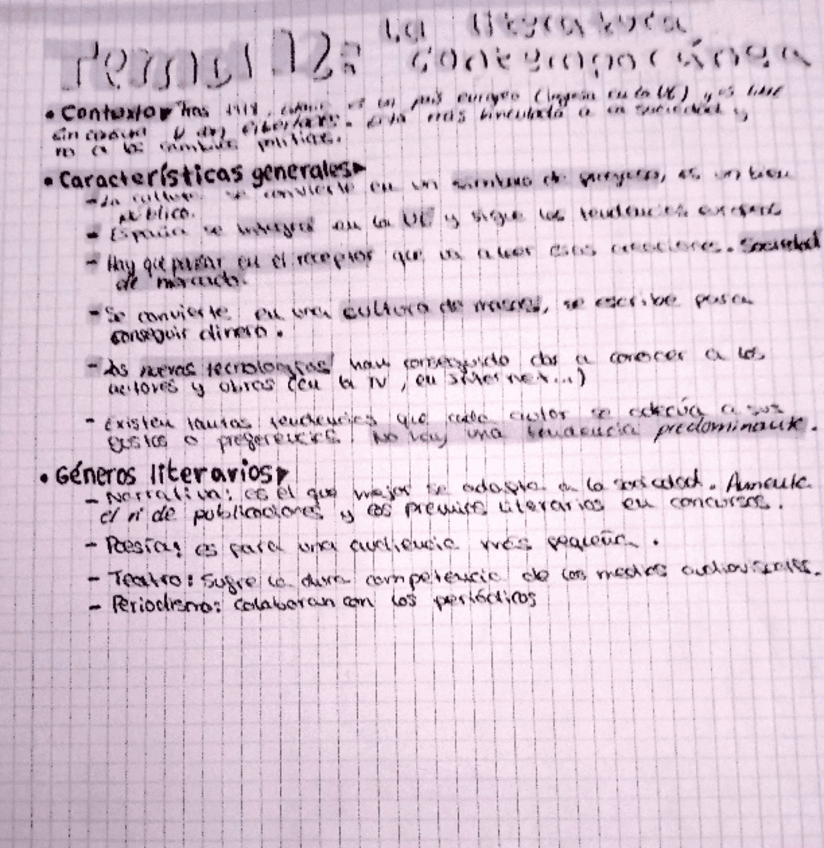 La literatura
Tema 12: contemporánea
• Contexto→ Tras es un país europeo (ingresa en la UE) y es libre
sin censura y libertades. Está más vinculada a la sociedad y
no a los cambios políticos.
• Características generales→
- La cultura se convierte en un símbolo de progreso, es un bien
público.
- España se integra en la UE y sigue las tendencias
- Hay que pensar en el receptor que va a leer esas creaciones. Sociedad
de mercado.
- Se convierte en una cultura de masas, se escribe para
conseguir dinero.
- Las nuevas tecnologías han conseguido dar a conocer a los
autores y obras (en la TV, en internet...)
- Existen tantas tendencias que cada autor se adecúa a sus
gustos o preferencias. No hay una tendencia predominante.
• Géneros literarios→
- Narrativa: es el que mejor se adapta a la sociedad. Aumenta
el nº de publicaciones y los premios literarios en concursos.
- Poesía: es para una audiencia más pequeña.
- Teatro: Sufre la dura competencia de los medios audiovisuales.
- Periodismo: colaboran con los periódicos